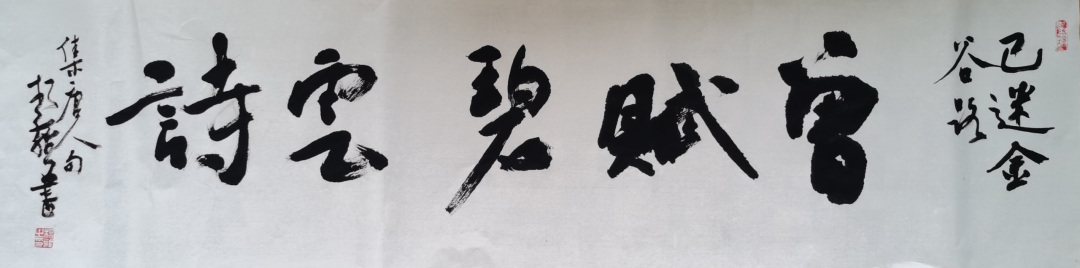 已迷金
谷路
曾賦碧雲詩
集唐人句
書